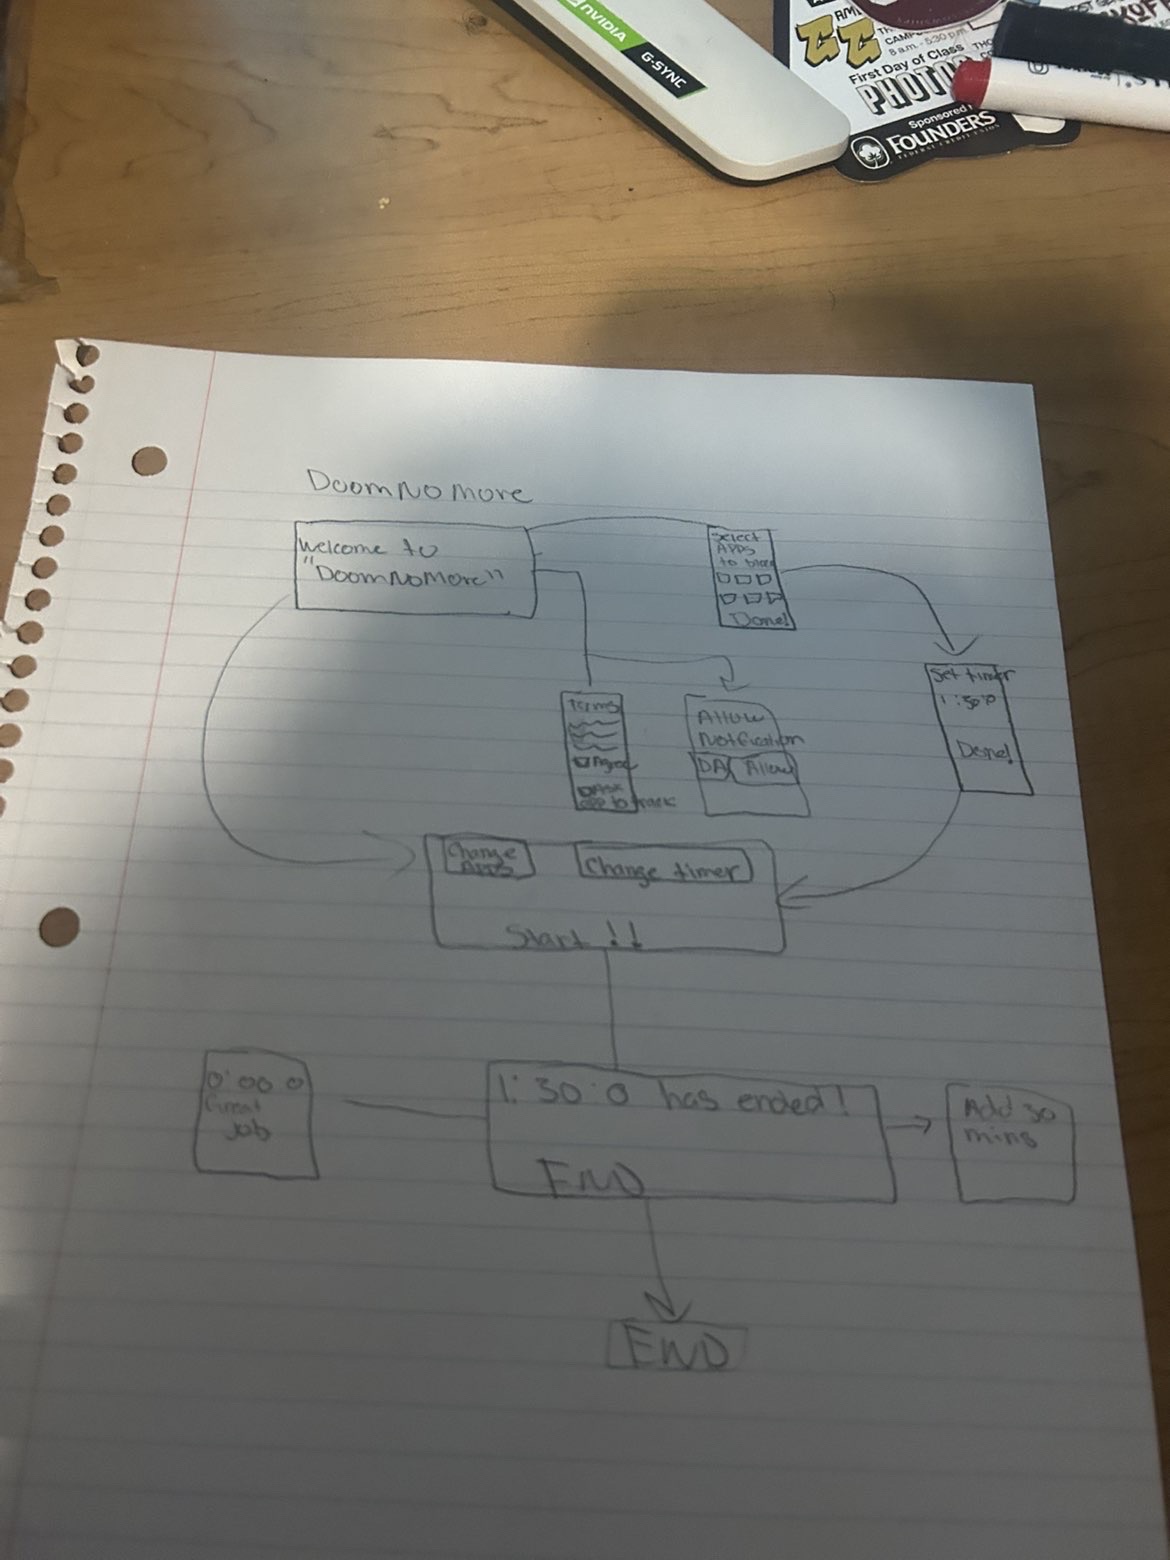 NVIDIA
G-SYNC
8 a.m. - 5:30 p.m.
First Day of Class
PHOTO
Sponsored
FOUNDERS
FEDERAL CREDIT UNION
DoomNoMore
Welcome to
"DoomNoMore"
Select
APPS
to block
Done!
Set timer
1:30:0
Done!
Terms
Agree
app to track
Allow
Notfication
DA Allow
Change
APPS
Change timer
Start !!
0:00 0
Great
Job
1:30:0 has ended!
END
Add 30
mins
END